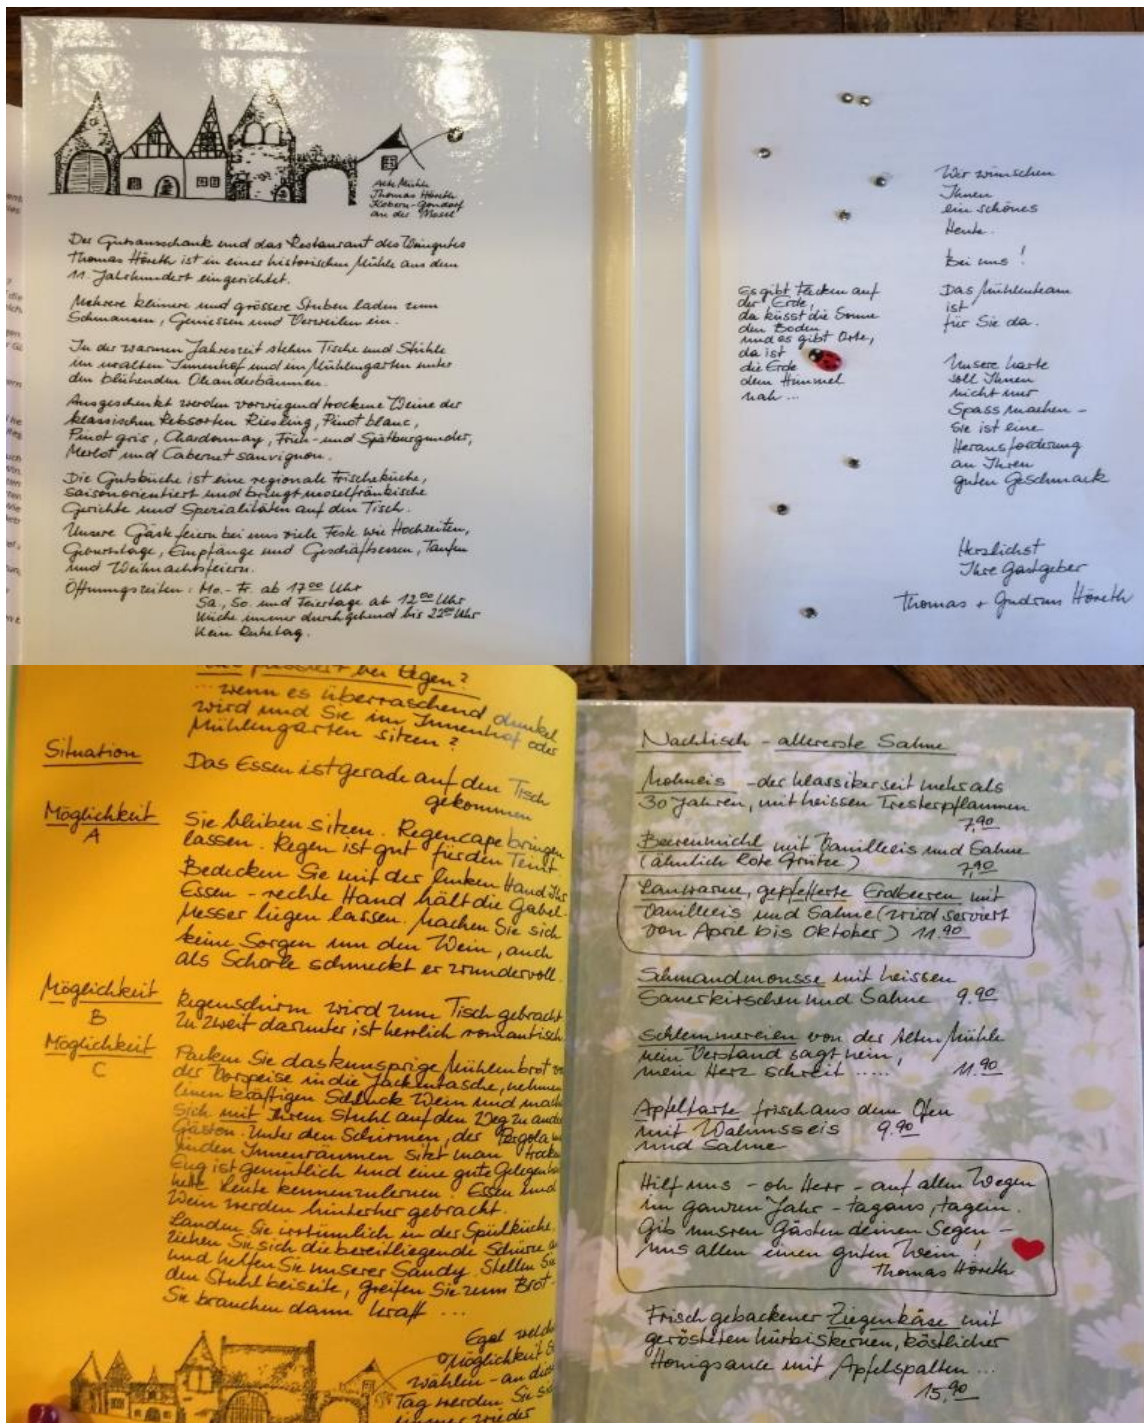 Alte Mühle
Thomas Höreth
Kobern-Gondorf
an der Mosel
Der Gutsausschank und das Restaurant des Weingutes
Thomas Höreth ist in einer historischen Mühle aus dem
11. Jahrhundert eingerichtet.
Mehrere kleinere und grössere Stuben laden zum
Schmausen, Geniessen und Verweilen ein.
In der warmen Jahreszeit stehen Tische und Stühle
im uralten Innenhof und im Mühlengarten unter
den blühenden Oleanderbäumen.
Ausgeschenkt werden vorwiegend trockene Weine der
klassischen Rebsorten Riesling, Pinot blanc,
Pinot gris, Chardonnay, Früh- und Spätburgunder,
Merlot und Cabernet sauvignon.
Die Gutsküche ist eine regionale Frischeküche,
saisonorientiert und bringt moselfränkische
Gerichte und Spezialitäten auf den Tisch.
Unsere Gäste feiern bei uns viele Feste wie Hochzeiten,
Geburtstage, Empfänge und Geschäftsessen, Taufen
und Weihnachtsfeiern.
Öffnungszeiten: Mo.- Fr. ab 17⁰⁰ Uhr
Sa., So. und Feiertage ab 12⁰⁰ Uhr
Küche immer durchgehend bis 22⁰⁰ Uhr
Kein Ruhetag.
Es gibt Flecken auf
der Erde,
da küsst die Sonne
den Boden
und es gibt Orte,
da ist
die Erde
dem Himmel
nah ...
Wir wünschen
Ihnen
ein schönes
Heute.
Bei uns!
Das Mühlenteam
ist
für Sie da.
Unsere Karte
soll Ihnen
nicht nur
Spass machen -
sie ist eine
Herausforderung
an Ihren
guten Geschmack
Herzlichst
Ihre Gastgeber
Thomas + Gudrun Höreth
passiert bei Regen?
... wenn es überraschend dunkel
wird und Sie im Innenhof oder
Mühlengarten sitzen?
Situation
Das Essen ist gerade auf den Tisch
gekommen
Möglichkeit
A
Sie bleiben sitzen. Regencape bringen
lassen. Regen ist gut für den Teint.
Bedecken Sie mit der linken Hand Ihr
Essen - rechte Hand hält die Gabel.
Messer liegen lassen. Machen Sie sich
keine Sorgen um den Wein, auch
als Schorle schmeckt er wundervoll.
Möglichkeit
B
Regenschirm wird zum Tisch gebracht
Zu zweit darunter ist herrlich romantisch
Möglichkeit
C
Packen Sie das knusprige Mühlenbrot
der Vorspeise in die Jackentasche, nehmen
einen kräftigen Schluck Wein und
sich mit Ihrem Stuhl auf den Weg zu
Gästen. Unter den Schirmen, der Pergola
in den Innenräumen sitzt man
Eng ist gemütlich und eine gute
nette Leute kennenzulernen. Essen und
Wein werden hinterher gebracht.
Landen Sie irrtümlich in der Spülküche,
ziehen Sie sich die bereitliegende Schürze
und helfen Sie unserer Sandy. Stellen Sie
den Stuhl beiseite, greifen Sie zum Brot.
Sie brauchen dann Kraft ...
Egal welche
Möglichkeit
wählen - an
Tag werden Sie
immer wieder
Nachtisch - allererste Sahne
Mohneis - der Klassiker seit mehr als
30 Jahren, mit heissen Tresterpflaumen
7,90
Beerenmichl mit Vanilleeis und Sahne
(ähnlich Rote Grütze) 7,90
Lauwarme, gepfefferte Erdbeeren mit
Vanilleeis und Sahne (wird serviert
von April bis Oktober) 11.90
Schmandmousse mit heissen
Sauerkirschen und Sahne 9.90
Schlemmereien von der Alten Mühle
mein Verstand sagt nein,
mein Herz schreit ..... 11.90
Apfeltarte frisch aus dem Ofen
mit Walnusseis 9.90
und Sahne
Hilf uns - oh Herr - auf allen Wegen
im ganzen Jahr - tagaus, tagein.
Gib unsren Gästen deinen Segen -
uns allen einen guten Wein!
Thomas Höreth
Frisch gebackener Ziegenkäse mit
gerösteten Kürbiskernen, köstlicher
Honigsauce mit Apfelspalten ...
15,90